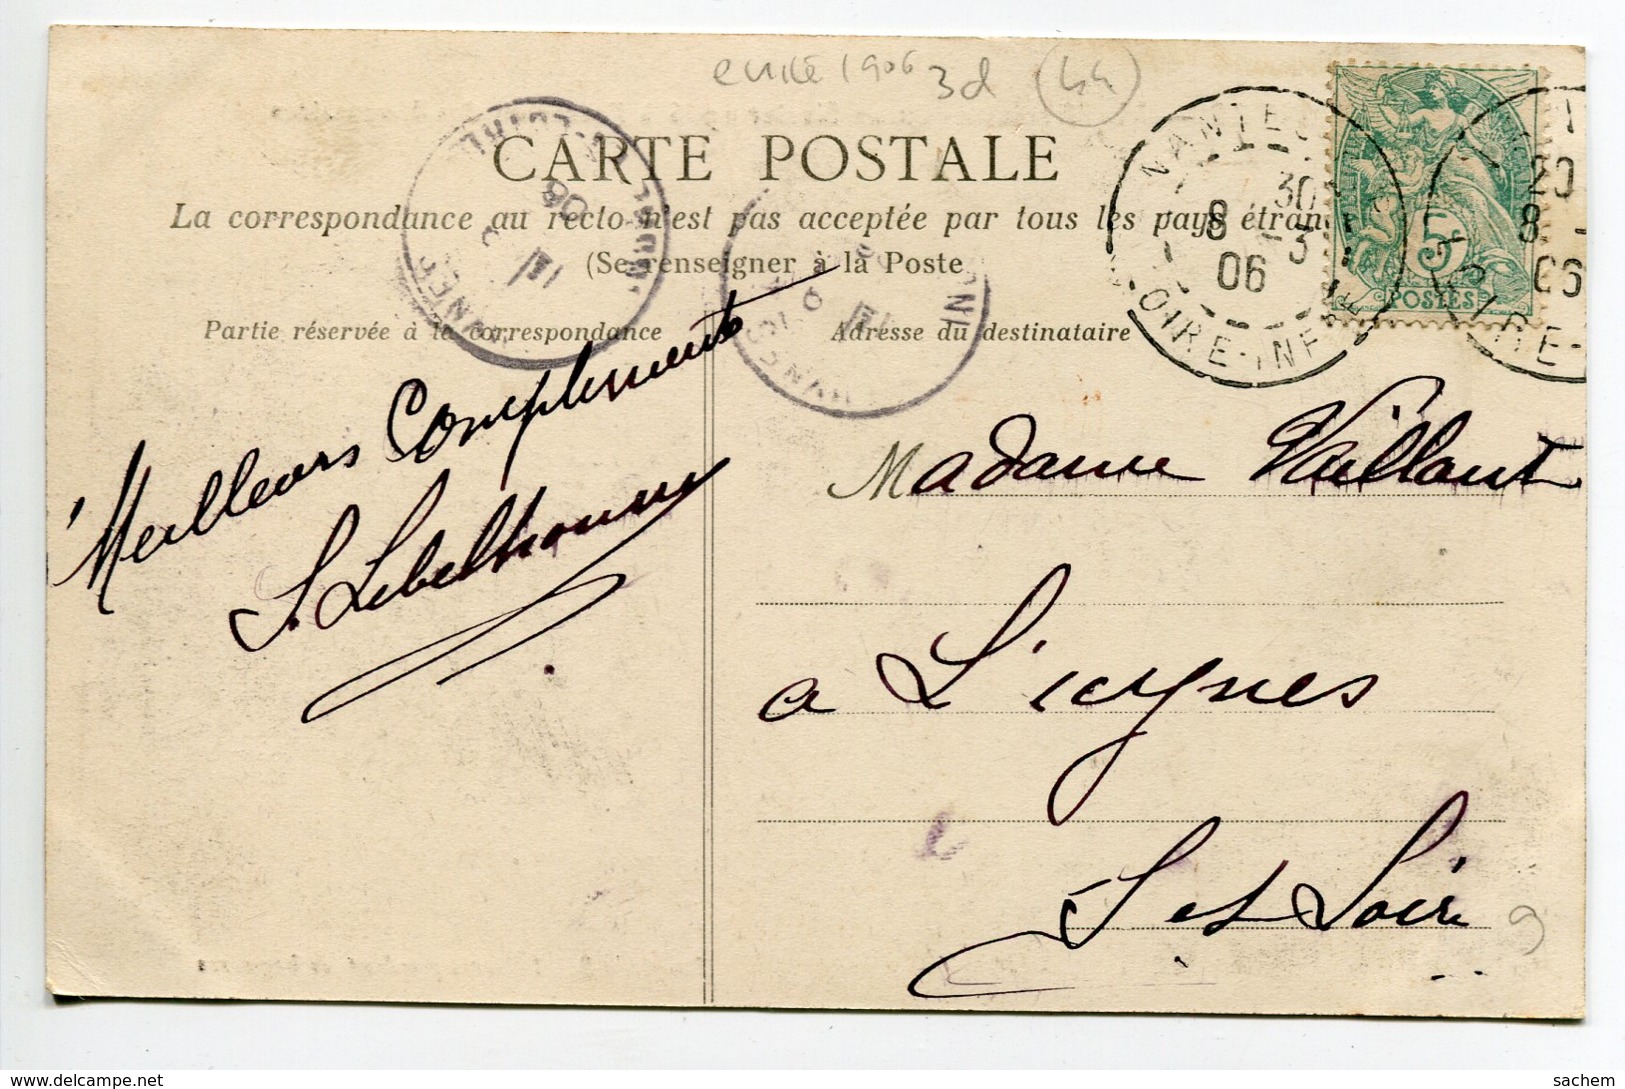 écrite 1906 3d 44
CARTE POSTALE
La correspondance au recto n'est pas acceptée par tous les pays étran
(Se renseigner à la Poste
Partie réservée à la correspondance
Adresse du destinataire
NANTES
8 30
-3
06
LOIRE-INFRE
5c
POSTES
20
8 -
06
IRE-
Meilleurs Compliments
Madame Vaillant
a L'icynes
S et Loire
9
sachem